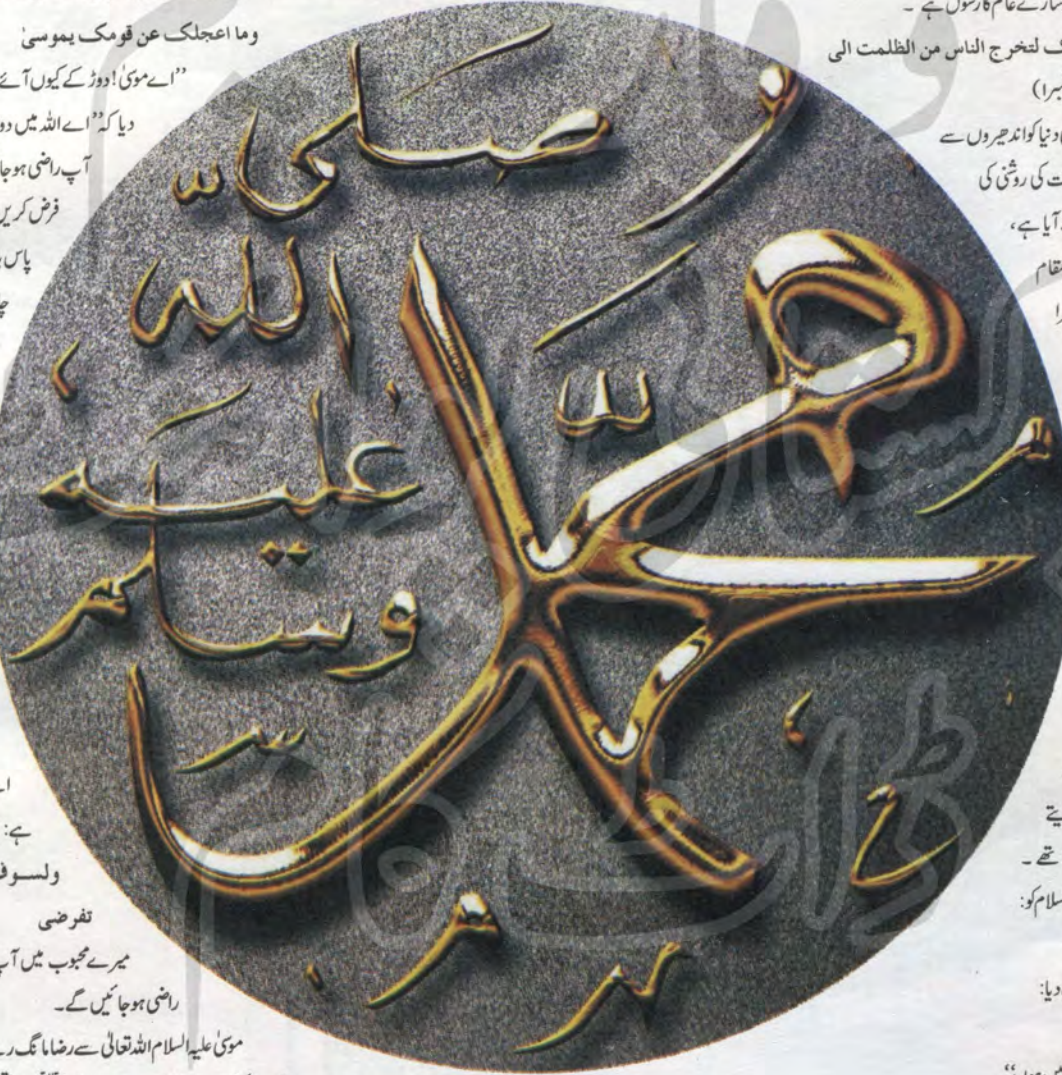 سارے عالم کا رسول ہے ۔
لتخرج الناس من الظلمت الی
دنیا کو اندھیروں سے
کی روشنی کی
آیا ہے،
تھے ۔
محمد
صلی الله
علیه
وسلم
وما اعجلک عن قومک یموسیٰ
”اے موسیٰ! دوڑ کے کیوں آئے
دیا کہ ”اے اللہ میں
آپ راضی ہو
فرض کریں
پاس
ہے:
ولسوف
تفرضی
میرے محبوب میں آپ
راضی ہو جائیں گے۔
موسیٰ علیہ السلام اللہ تعالیٰ سے رضا مانگ